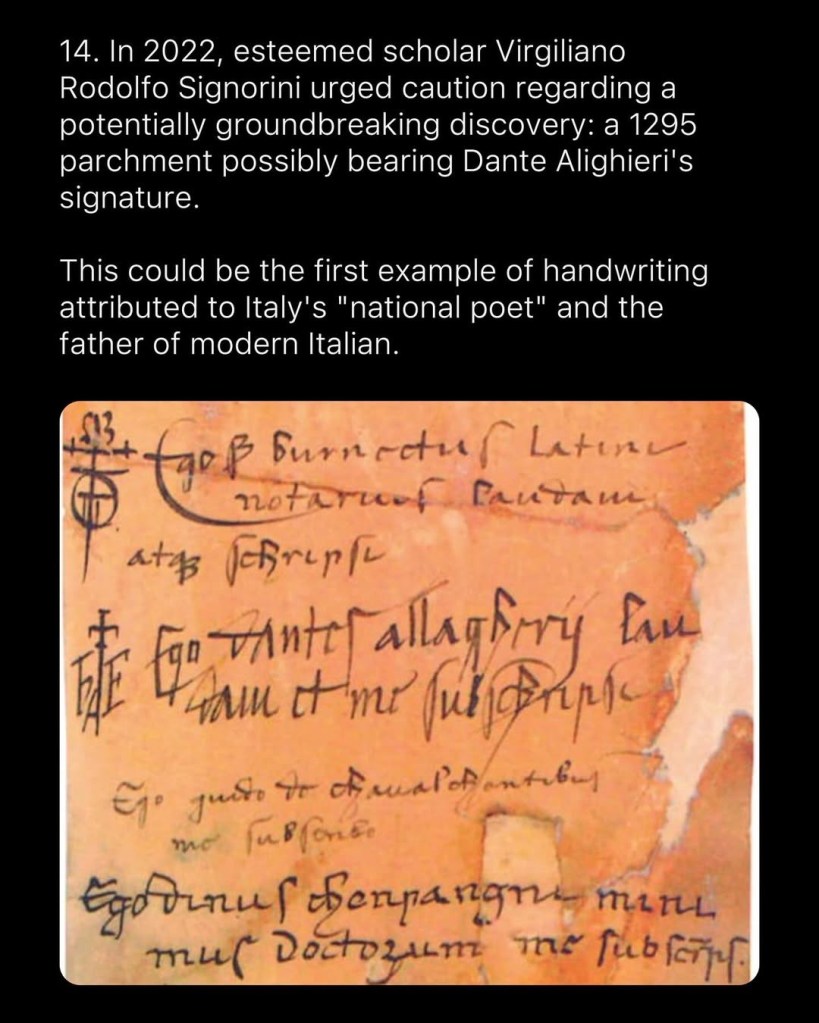 14. In 2022, esteemed scholar Virgiliano
Rodolfo Signorini urged caution regarding a
potentially groundbreaking discovery: a 1295
parchment possibly bearing Dante Alighieri's
signature.
This could be the first example of handwriting
attributed to Italy's "national poet" and the
father of modern Italian.
Ego Burnectus Latini
notarius
scripsi
Ego Dantes
et me
Ego guido de
me
Ego dinus
mus Doctorum me